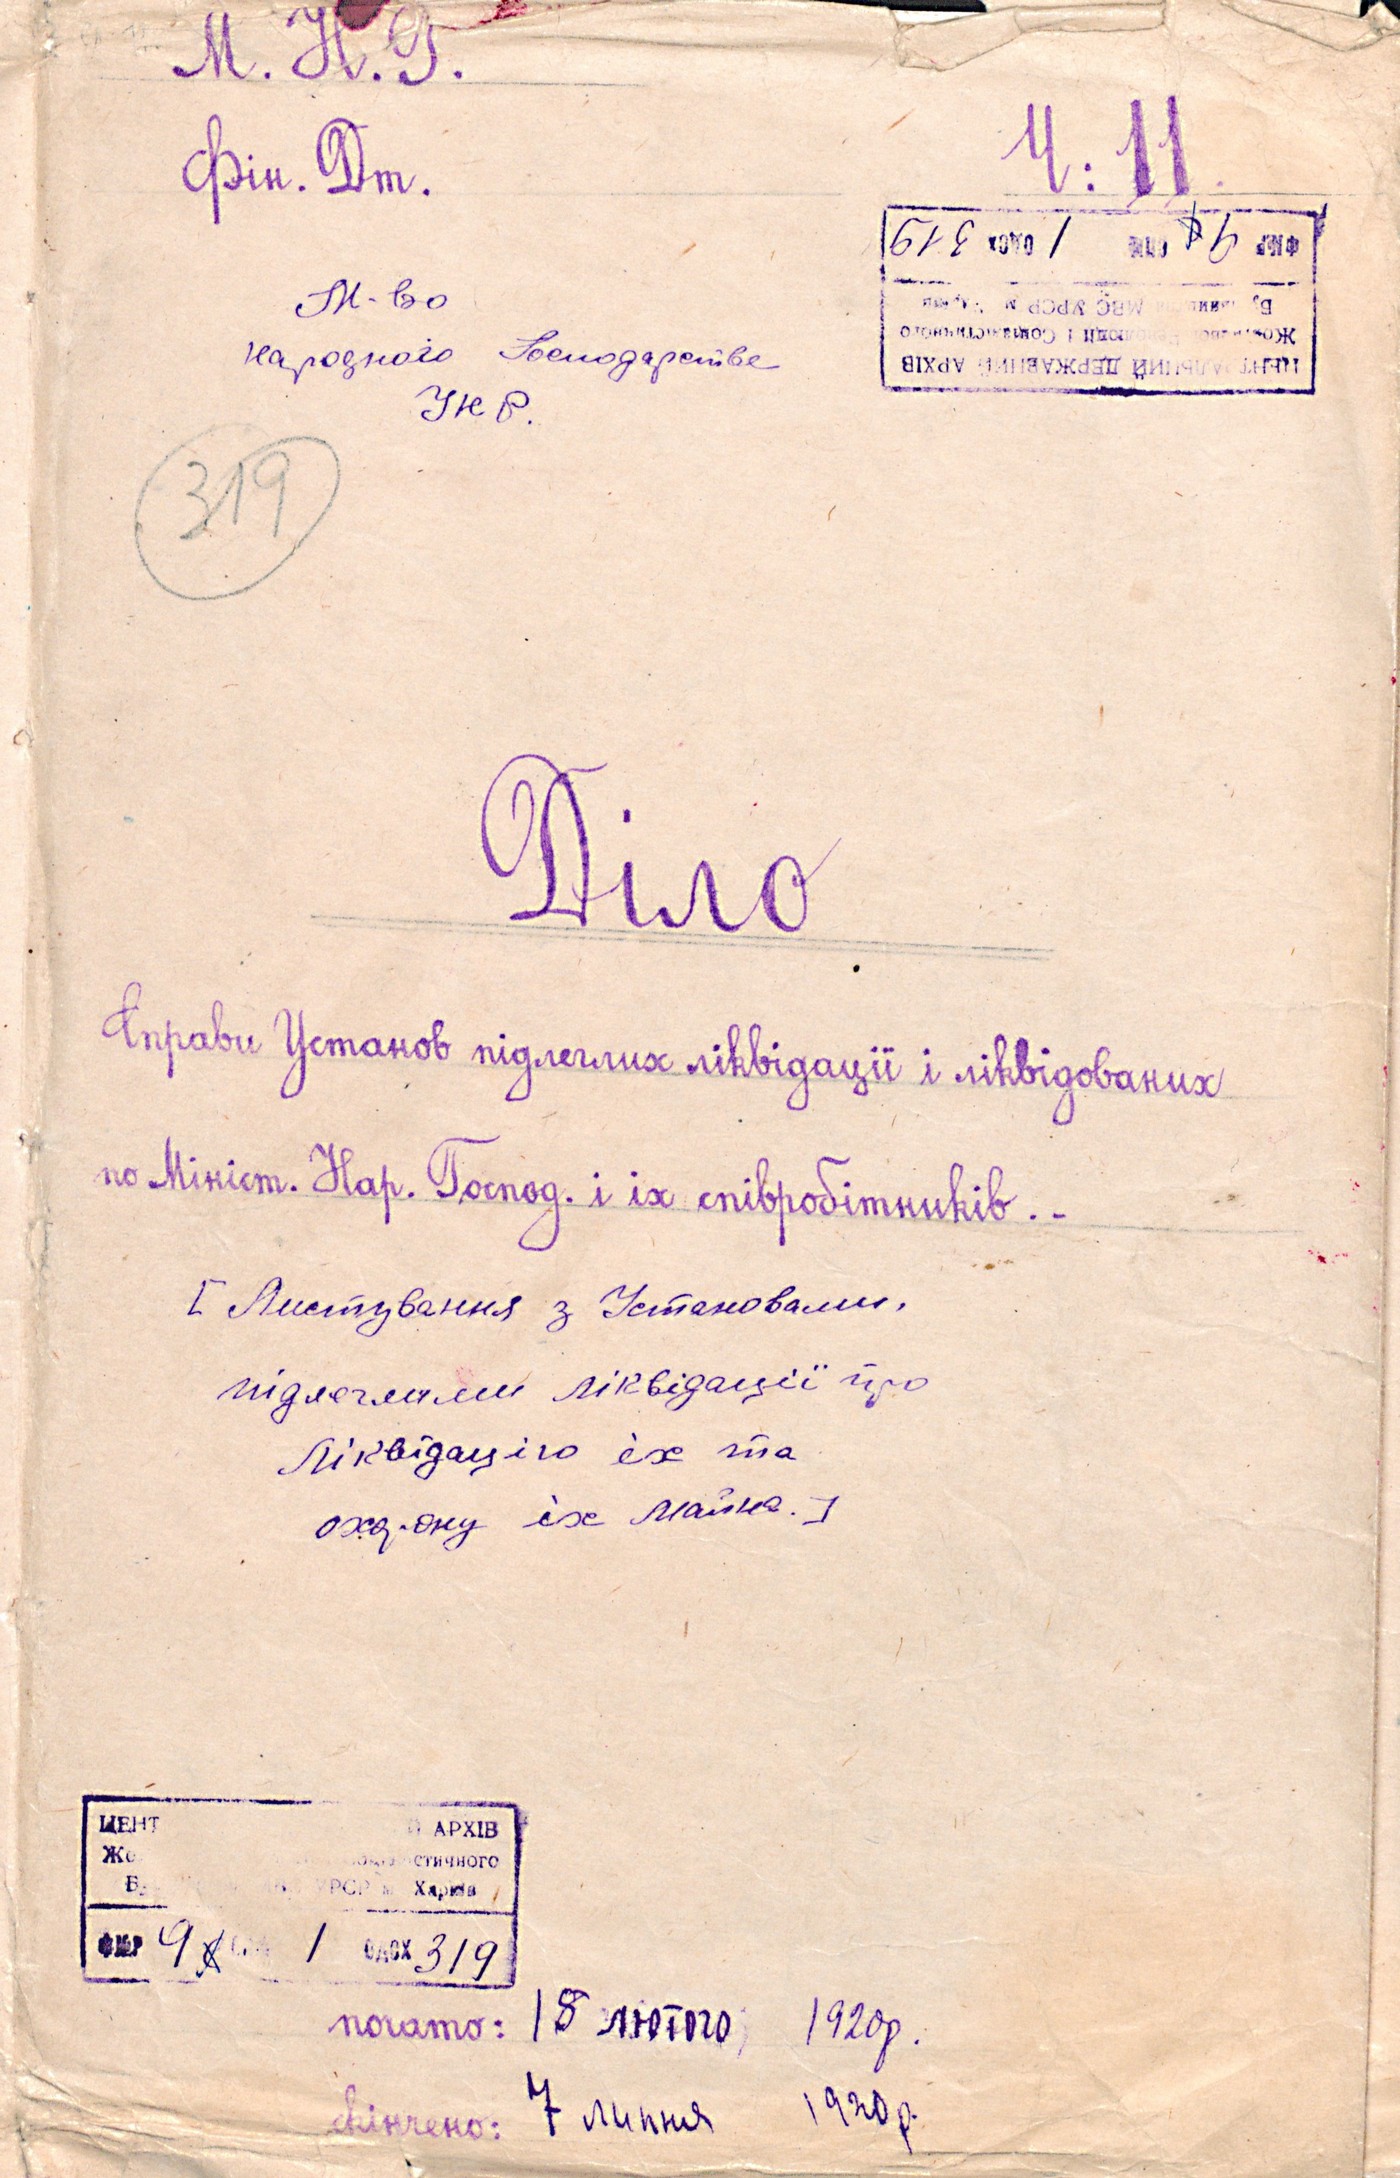 М. Н. Г.
Фін. Дт.
Ч: 11.
ФМР 9 СПЮ 1 ОДСХ 319
МВС УРСР м.
Жовтневої Революції і Соціалістичного
ЦЕНТРАЛЬНИЙ ДЕРЖАВНИЙ АРХІВ
М-во
народного Господарства
УНР.
319
Діло
Справи Установ підлеглих ліквідації і ліквідованих
по Мініст. Нар. Господ. і іх співробітників. -
[ Листування з Установами,
підлеглими ліквідації про
ліквідацію їх та
охорону їх майна. ]
ЦЕНТ АРХІВ
Жо стичного
УРСР м Харків
ФМР 9 1 ОДСХ 319
почато: 18 лютого 1920р.
скінчено: 7 липня 1920р.